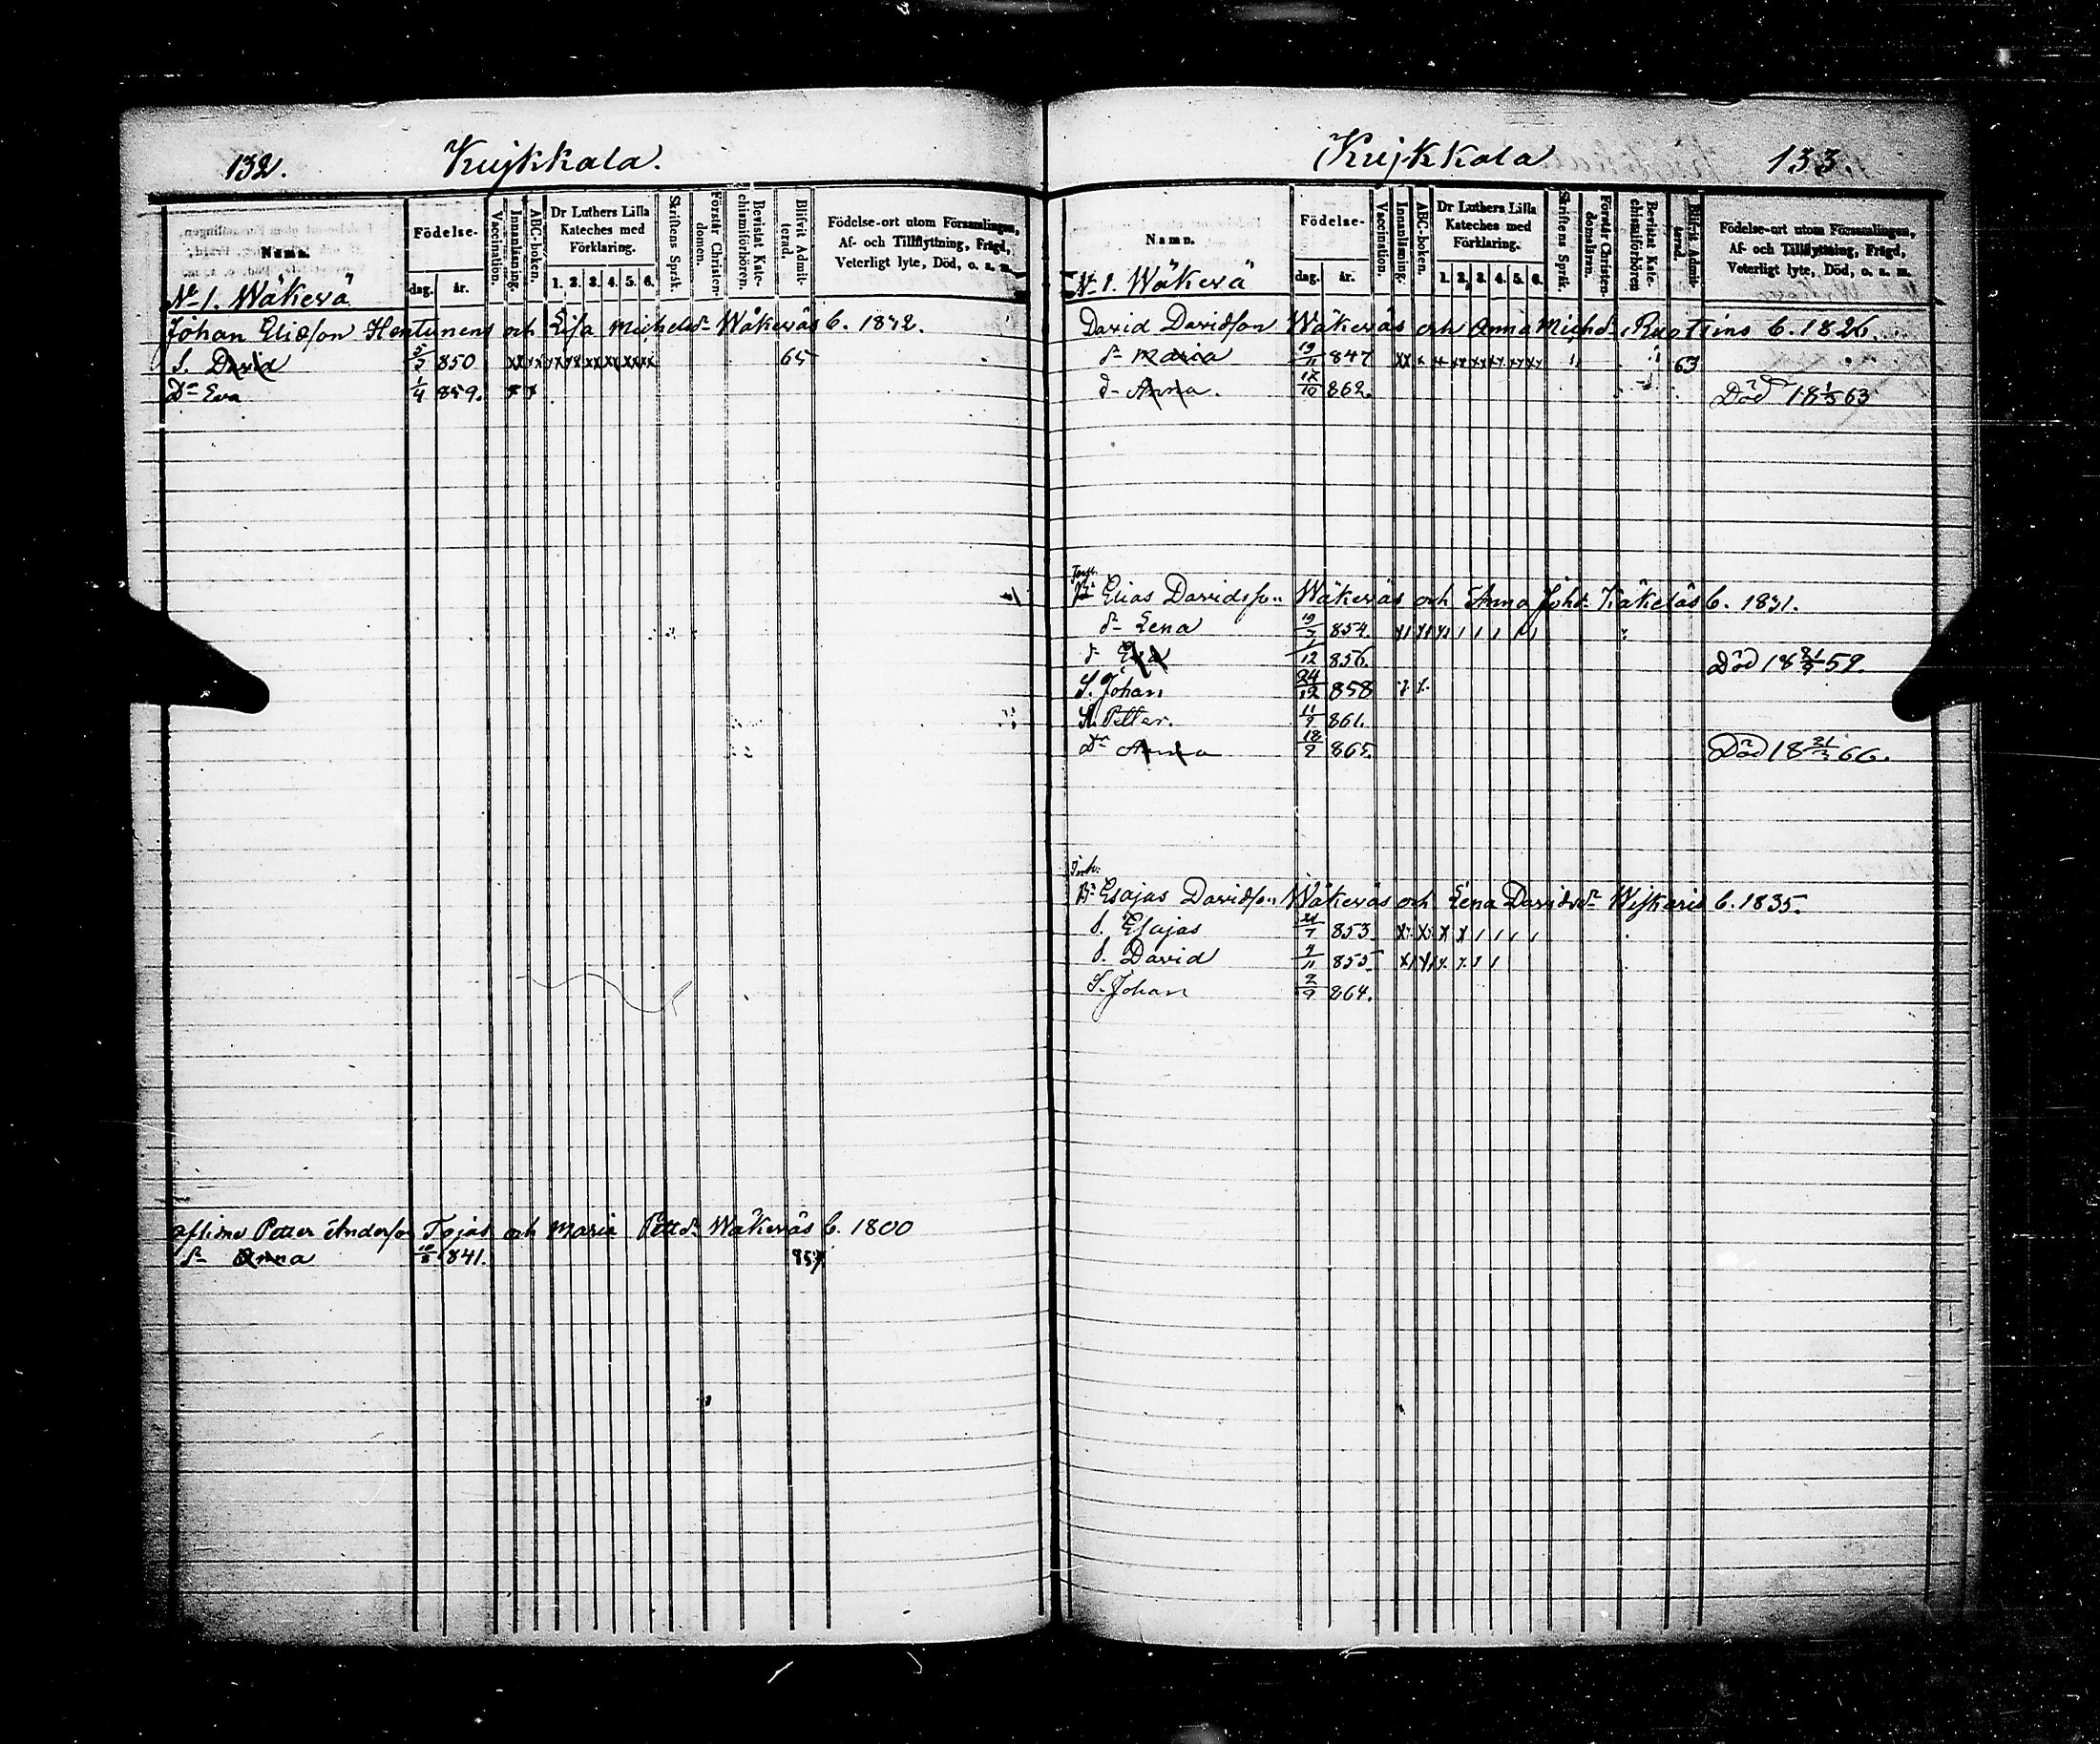 132. Kujkkala.
Namn. Födelse- dag. år. Vaccination. Innanläsning. ABC-boken. Dr Luthers Lilla Kateches med Förklaring. 1. 2. 3. 4. 5. 6. Skriftens Språk. Förstår Christendomen. Bevistat Katechismiförhören. Blifvit Admitterad. Födelse-ort utom Församlingen, Af- och Tillflyttning, Frägd, Veterligt lyte, Död, o. s. m.
No 1. Wäkevä
Johan Eliasson Hentunens och Lisa Michelsdr Wäkeväs b. 1832.
S. David 5/2 850 65
Dr Eva 1/4 859.
aflidne Petter Andersson Tojas och Maria Pettdr Wäkeväs b. 1800
dr Anna 10/8 1841. 857
Kujkkala 133.
Namn. Födelse- dag. år. Vaccination. Innanläsning. ABC-boken. Dr Luthers Lilla Kateches med Förklaring. 1. 2. 3. 4. 5. 6. Skriftens Språk. Förstår Christendomsläran. Bevistat Katechismiförhören Blifvit Admitterad. Födelse-ort utom Församlingen, Af- och Tillflyttning, Frägd, Veterligt lyte, Död, o. s. m.
No 1. Wäkevä
David Davidsson Wäkeväs och Anna Michdr Ruottins b. 1826.
dr Maria 19/11 847 63
d- Anna. 17/10 862. Död 18 1/5 63
Br Elias Davidsson Wäkeväs och Anna Johdr Käkeläs b. 1831.
dr Lena 19/7 854.
dr Eva 1/12 856. Död 18 21/9 59.
S. Johan 24/12 858
S. Petter. 11/9 861.
Dr Anna 18/9 865. Död 18 21/3 66.
Inh.
Br Esajas Davidsson Wäkeväs och Lena Davidsdr Wiskaris b. 1835.
S. Esajas 21/7 853
S. David 4/11 855
S. Johan 2/9 864.